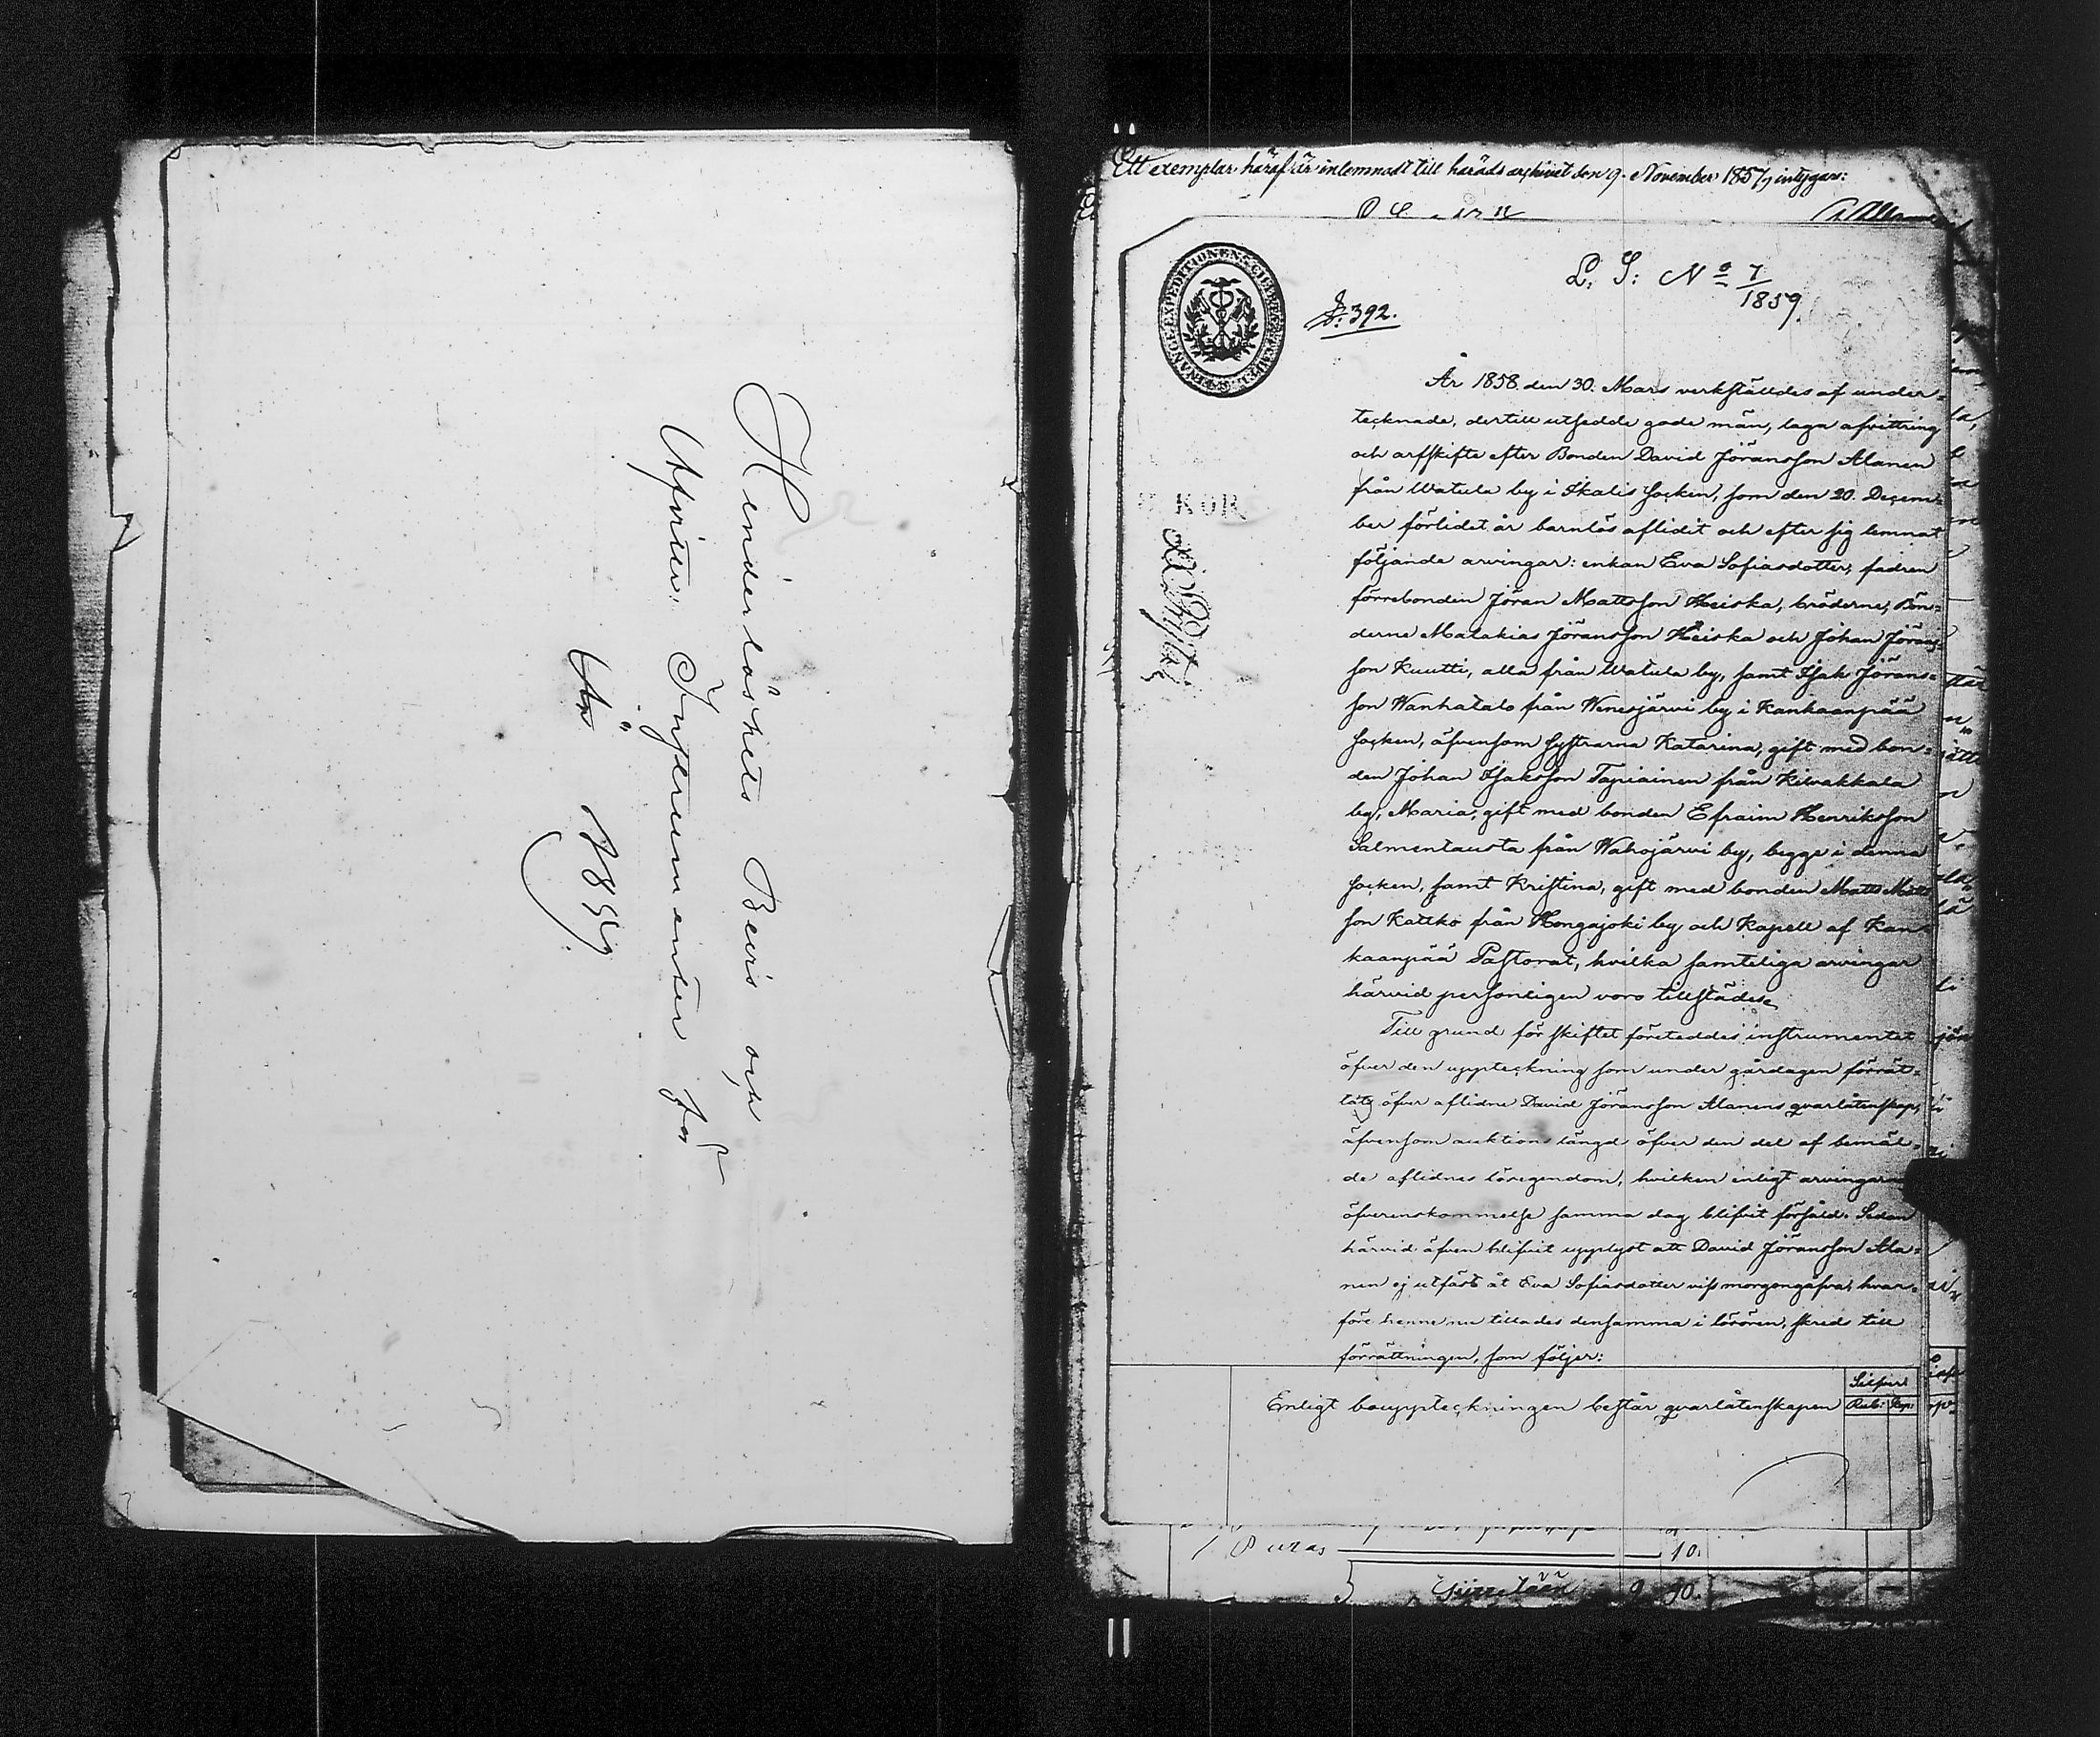 Hinderlöshets Bevis och
Afvitter: Instrumenter för
År 1859
Ett exemplar häraf är inlemnadt till härads archivet den 9. November 1857, intygar:
L. S: No 7/1859.
§: 392.
År 1858 den 30. Mars verkställdes af under=
tecknade, dertill utsedde gode män, laga afvittring
och arfskifte efter Bonden David Jöransson Alanen
från Watula by i Ikalis socken, som den 20. Decem=
ber förlidet år barnlös aflidit och efter sig lemnat
följande arvingar: enkan Eva Sofiasdotter, fadren
förrebonden Jöran Mattsson Heiska, bröderne, Bön=
derne Malakias Jöransson Heiska och Johan Jörans=
son Kuutti, alla från Watula by, samt Isak Jörans=
son Wanhatalo från Wenesjärvi by i Kankaanpää
socken, äfvensom systrarna Katarina, gift med bon=
den Johan Isaksson Tapiainen från Kilvakkala
by, Maria, gift med bonden Efraim Henriksson
Salmentausta från Wahojärvi by, begge i denna
socken, samt Kristina, gift med bonden Matts Matts
son Kattko från Hongojoki by och Kapell af Kan=
kaanpää Pastorat, hvilka samteliga arvingar
härvid personligen voro tillstädes.
Till grund för skiftet företeddes instrumentet
öfver den uppteckning som under gårdagen förrät=
tats öfver aflidne David Jöransson Alanens qvarlåtenskap,
äfvensom auktions längd öfver den del af bemäl=
de aflidnes lösegendom, hvilken enligt arvingarne
öfverenskommelse samma dag blifvit försåld. Sedan
härvid äfven blifvit upplyst att David Jöransson Ala=
nen ej utfäst åt Eva Sofiasdotter viss morgongåfva, hvar=
före henne nu tillades densamma i lösören, skreds till
förrättningen, som följer:
Silfver
Rub: Kop:
Enligt bouppteckningen består qvarlåtenskapen
1 Puras 10.